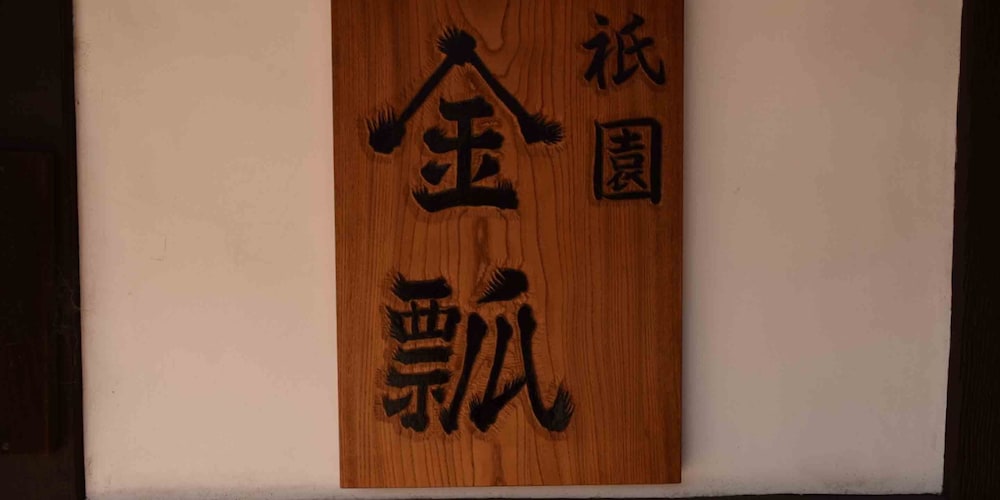 祇園
金瓢